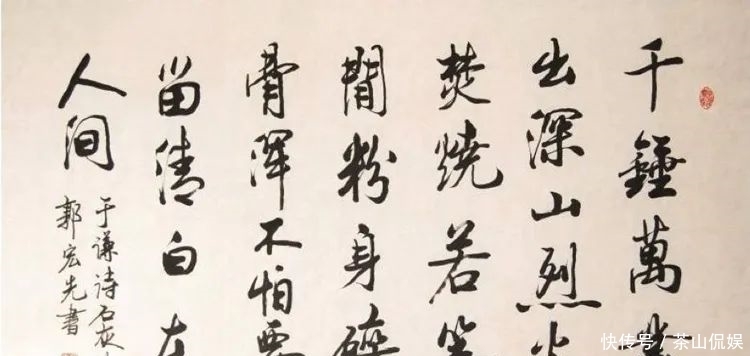 千錘萬
出深山烈火
焚燒若等
閒粉身碎
骨渾不怕要
留清白在
人间
于谦诗石灰
郭宏先書
快传号/茶山侃娱